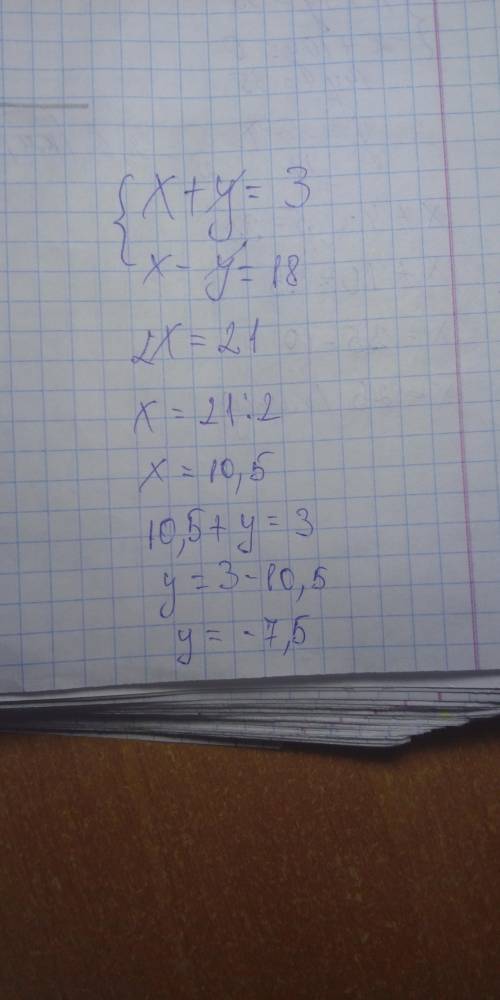 { x + y = 3
x - y = 18
2x = 21
x = 21:2
x = 10,5
10,5 + y = 3
y = 3 - 10,5
y = -7,5